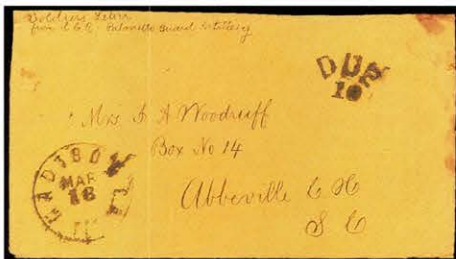 Soldiers Letter
from Palmetto Guard Artillery
DUE
10
Mrs A Woodruff
Box No 14
Abbeville C H
S C
MADISON
MAR
18